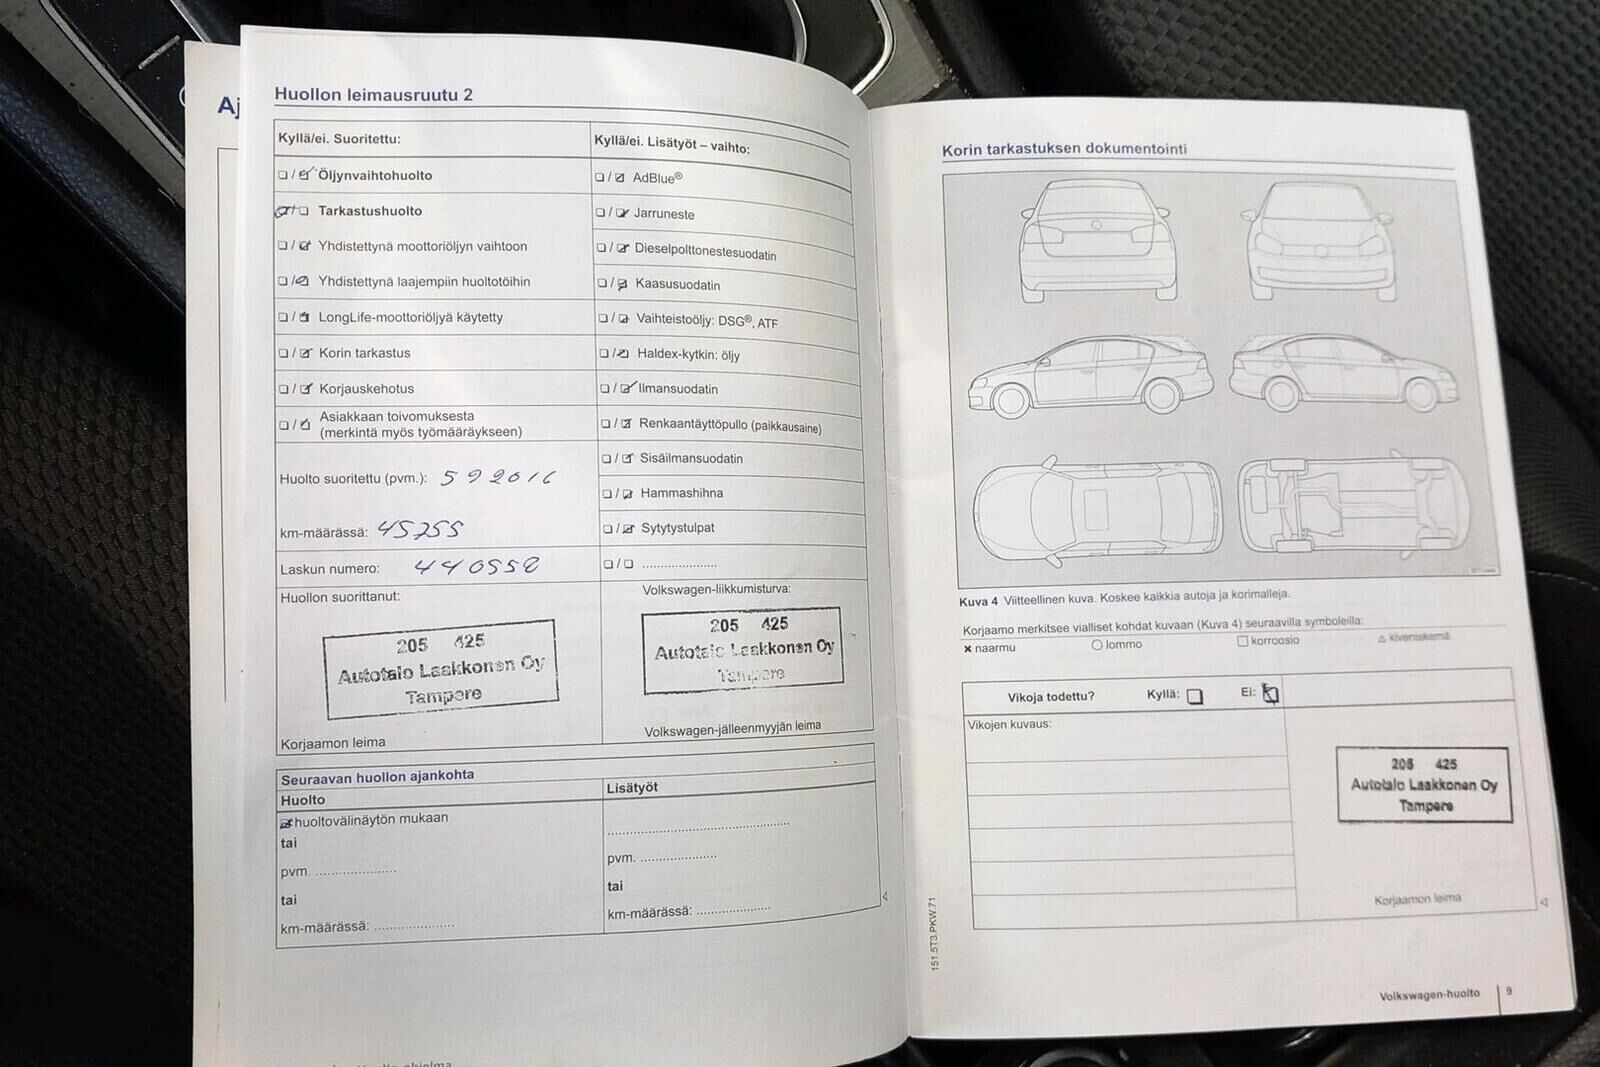 Aj
Huollon leimausruutu 2
Kyllä/ei. Suoritettu:
Öljynvaihtohuolto
Tarkastushuolto
Yhdistettynä moottoriöljyn vaihtoon
Yhdistettynä laajempiin huoltotöihin
LongLife-moottoriöljyä käytetty
Korin tarkastus
Korjauskehotus
Asiakkaan toivomuksesta
(merkintä myös työmääräykseen)
Huolto suoritettu (pvm.): 5 9 2016
km-määrässä: 45755
Laskun numero: 440558
Huollon suorittanut:
205 425
Autotalo Laakkonen Oy
Tampere
Korjaamon leima
Kyllä/ei. Lisätyöt – vaihto:
AdBlue®
Jarruneste
Dieselpolttonestesuodatin
Kaasusuodatin
Vaihteistoöljy: DSG®, ATF
Haldex-kytkin: öljy
Ilmansuodatin
Renkaantäyttöpullo (paikkausaine)
Sisäilmansuodatin
Hammashihna
Sytytystulpat
Volkswagen-liikkumisturva:
205 425
Autotalo Laakkonen Oy
Tampere
Volkswagen-jälleenmyyjän leima
Seuraavan huollon ajankohta
Huolto
huoltovälinäytön mukaan
tai
pvm. ....................
tai
km-määrässä: ....................
Lisätyöt
pvm. ....................
tai
km-määrässä: ....................
Korin tarkastuksen dokumentointi
Kuva 4 Viitteellinen kuva. Koskee kaikkia autoja ja korimalleja.
Korjaamo merkitsee vialliset kohdat kuvaan (Kuva 4) seuraavilla symboleilla:
x naarmu lommo korroosio kiveniskemä
Vikoja todettu? Kyllä: Ei:
Vikojen kuvaus:
205 425
Autotalo Laakkonen Oy
Tampere
Korjaamon leima
151.5T3.PKW.71
Volkswagen-huolto 9